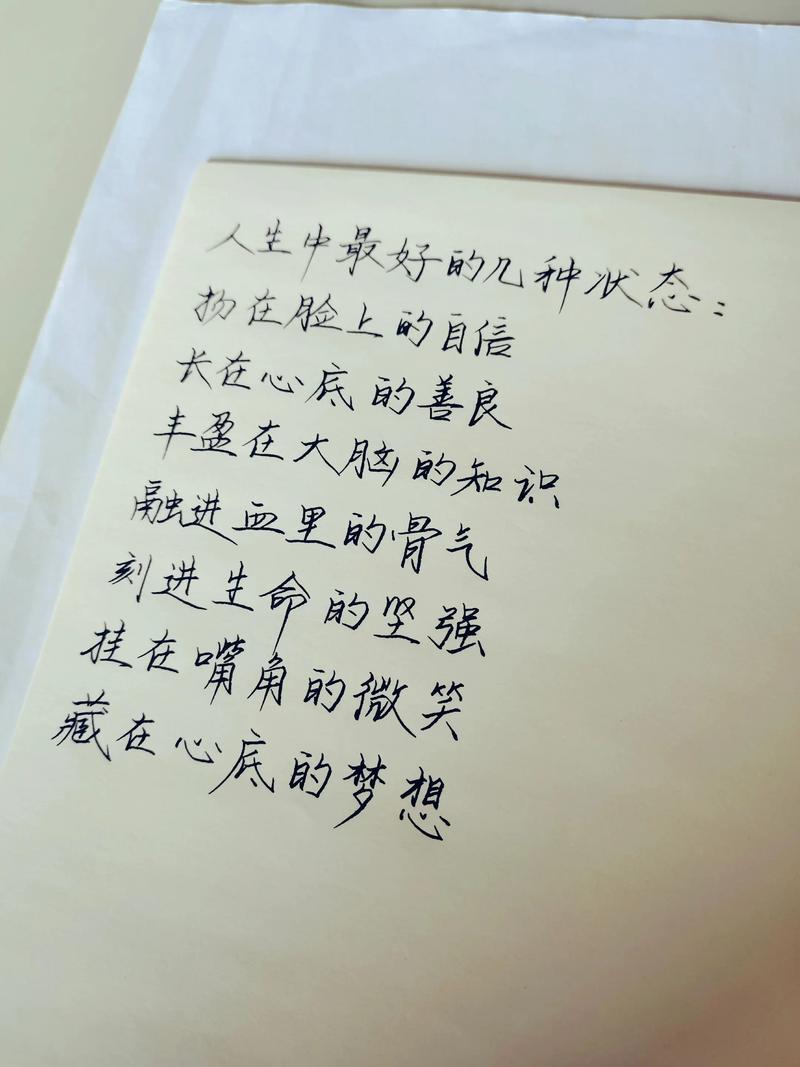 人生中最好的几种状态：
扬在脸上的自信
长在心底的善良
丰盈在大脑的知识
融进血里的骨气
刻进生命的坚强
挂在嘴角的微笑
藏在心底的梦想